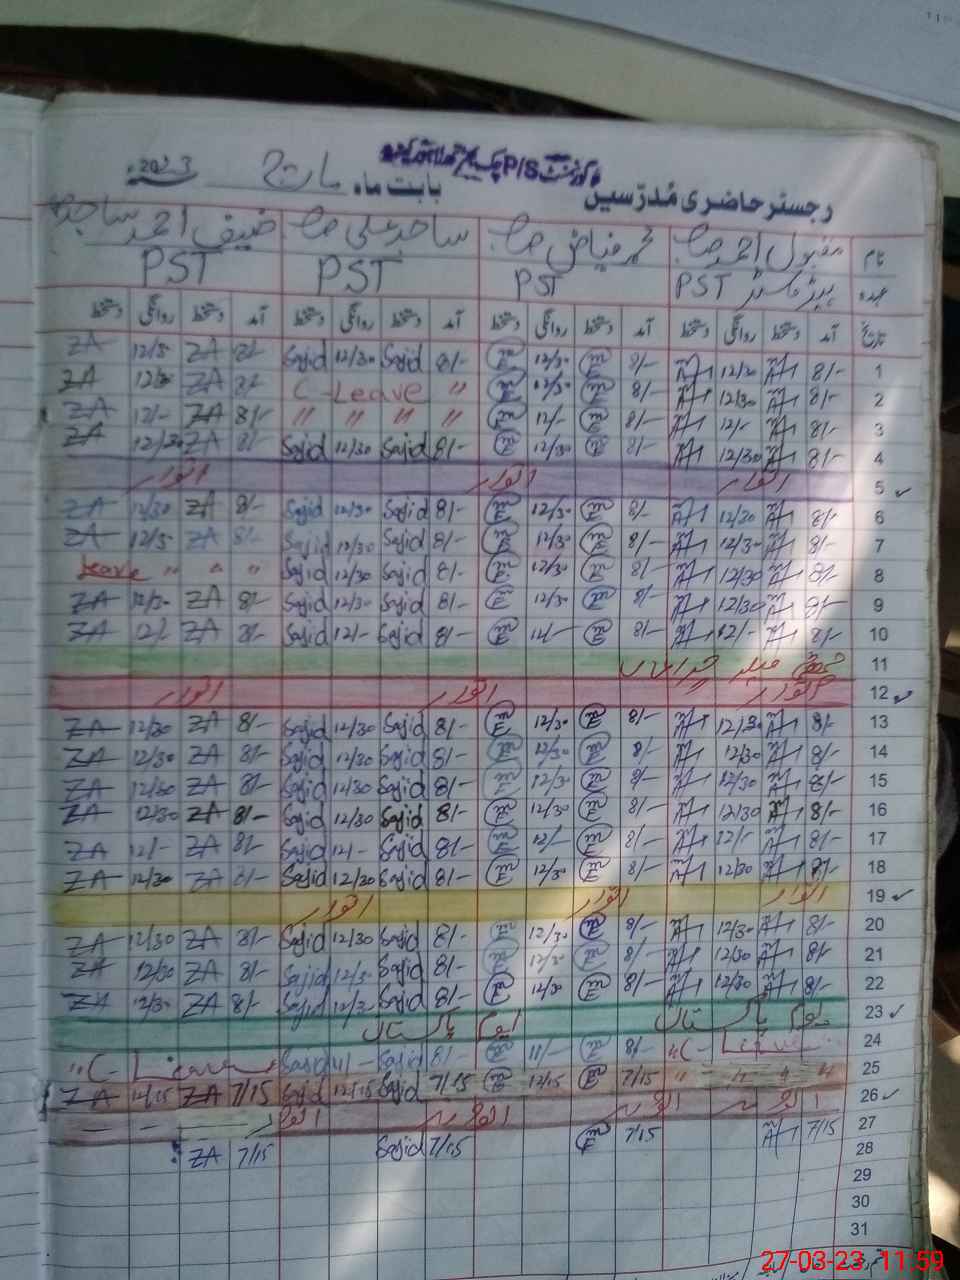 گورنمنٹ P/S چک
رجسٹر حاضری مُدرّسین بابت ماہ مارچ 2023ء
نام مقبول احمد صاحب محمد فیاض صاحب ساجد علی صاحب حنیف احمد ساجد
عہدہ ہیڈ ماسٹر PST PST PST PST
تاریخ آمد دستخط روانگی دستخط آمد دستخط روانگی دستخط آمد دستخط روانگی دستخط آمد دستخط روانگی دستخط
1 8/- 12/30 8/- 12/30 8/- Sajid 12/30 Sajid 8/- ZA 12/30 ZA
2 8/- 12/30 8/- 12/30 " C-Leave 8/- ZA 12/30 ZA
3 8/- 12/- 8/- 12/- " " " " 8/- ZA 12/- ZA
4 8/- 12/30 8/- 12/30 8/- Sajid 12/30 Sajid 8/- ZA 12/30 ZA
5 اتوار اتوار اتوار
6 8/- 12/30 8/- 12/30 8/- Sajid 12/30 Sajid 8/- ZA 12/30 ZA
7 8/- 12/30 8/- 12/30 8/- Sajid 12/30 Sajid 8/- ZA 12/30 ZA
8 8/- 12/30 8/- 12/30 8/- Sajid 12/30 Sajid " " " Leave
9 8/- 12/30 8/- 12/30 8/- Sajid 12/30 Sajid 8/- ZA 12/30 ZA
10 8/- 12/- 8/- 12/- 8/- Sajid 12/- Sajid 8/- ZA 12/- ZA
11 میلہ چراغاں
12 اتوار اتوار اتوار
13 8/- 12/30 8/- 12/30 8/- Sajid 12/30 Sajid 8/- ZA 12/30 ZA
14 8/- 12/30 8/- 12/30 8/- Sajid 12/30 Sajid 8/- ZA 12/30 ZA
15 8/- 12/30 8/- 12/30 8/- Sajid 12/30 Sajid 8/- ZA 12/30 ZA
16 8/- 12/30 8/- 12/30 8/- Sajid 12/30 Sajid 8/- ZA 12/30 ZA
17 8/- 12/- 8/- 12/- 8/- Sajid 12/- Sajid 8/- ZA 12/- ZA
18 8/- 12/30 8/- 12/30 8/- Sajid 12/30 Sajid 8/- ZA 12/30 ZA
19 اتوار اتوار اتوار
20 8/- 12/30 8/- 12/30 8/- Sajid 12/30 Sajid 8/- ZA 12/30 ZA
21 8/- 12/30 8/- 12/30 8/- Sajid 12/30 Sajid 8/- ZA 12/30 ZA
22 8/- 12/30 8/- 12/30 8/- Sajid 12/30 Sajid 8/- ZA 12/30 ZA
23 یوم پاکستان یوم پاکستان
24 "C- Leave 8/- 11/- 8/- Sajid 11/- "C- Leave
25 " " " " 7/15 12/15 7/15 Sajid 12/15 Sajid 7/15 ZA 12/15 ZA
26 اتوار اتوار اتوار اتوار
27 7/15 7/15 7/15 Sajid 7/15 ZA
28
29
30
31
27-03-23 11:59